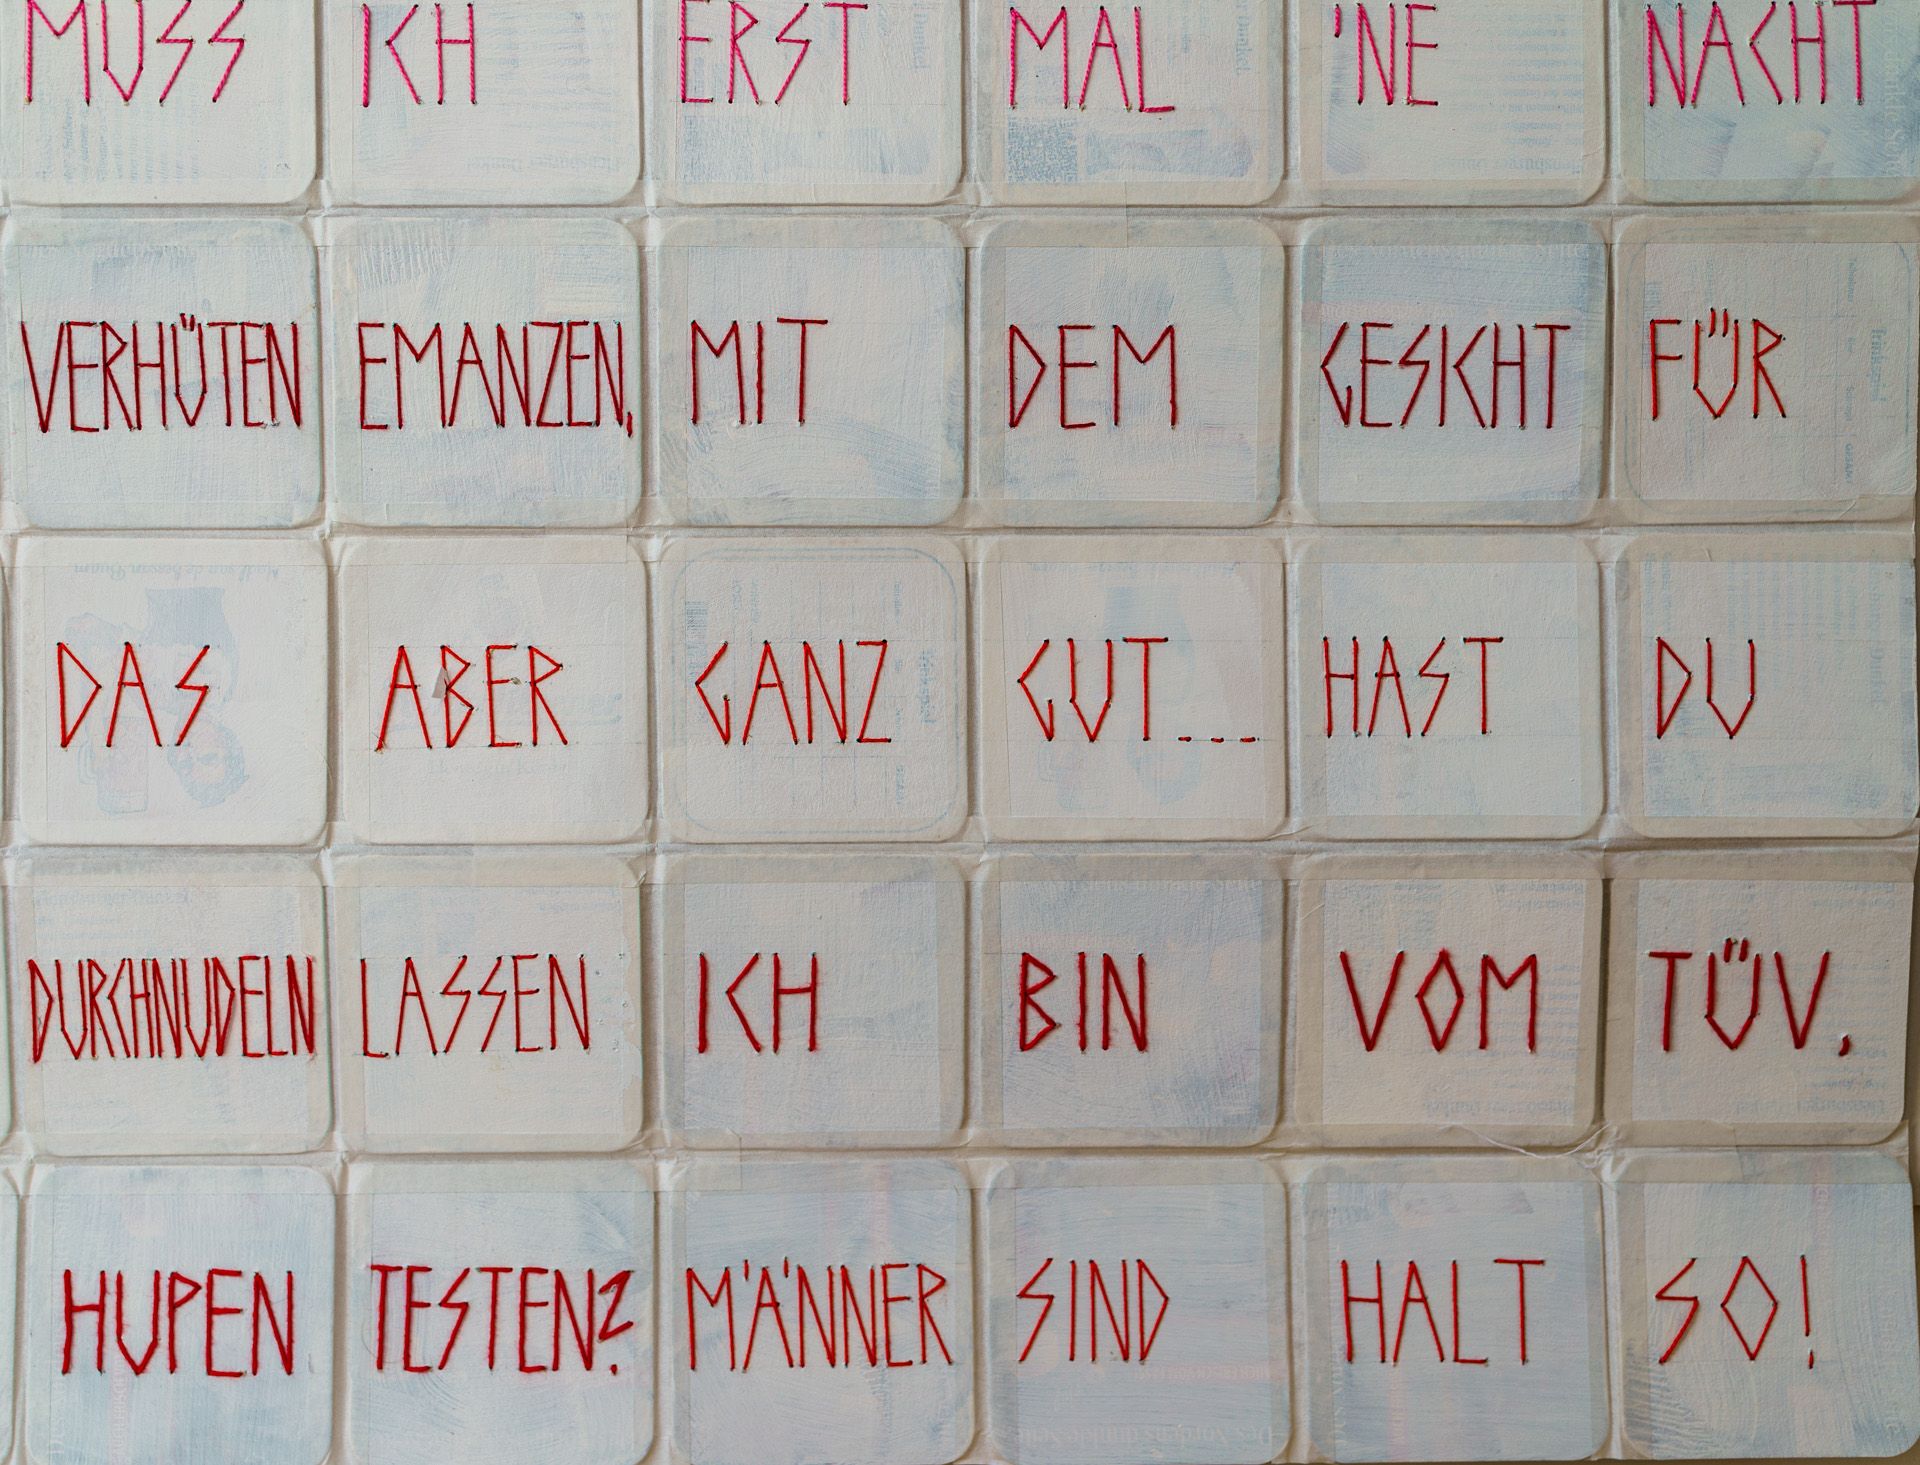 MUSS ICH ERST MAL 'NE NACHT
VERHÜTEN EMANZEN, MIT DEM GESICHT FÜR
DAS ABER GANZ GUT... HAST DU
DURCHNUDELN LASSEN ICH BIN VOM TÜV,
HUPEN TESTEN? MÄNNER SIND HALT SO!